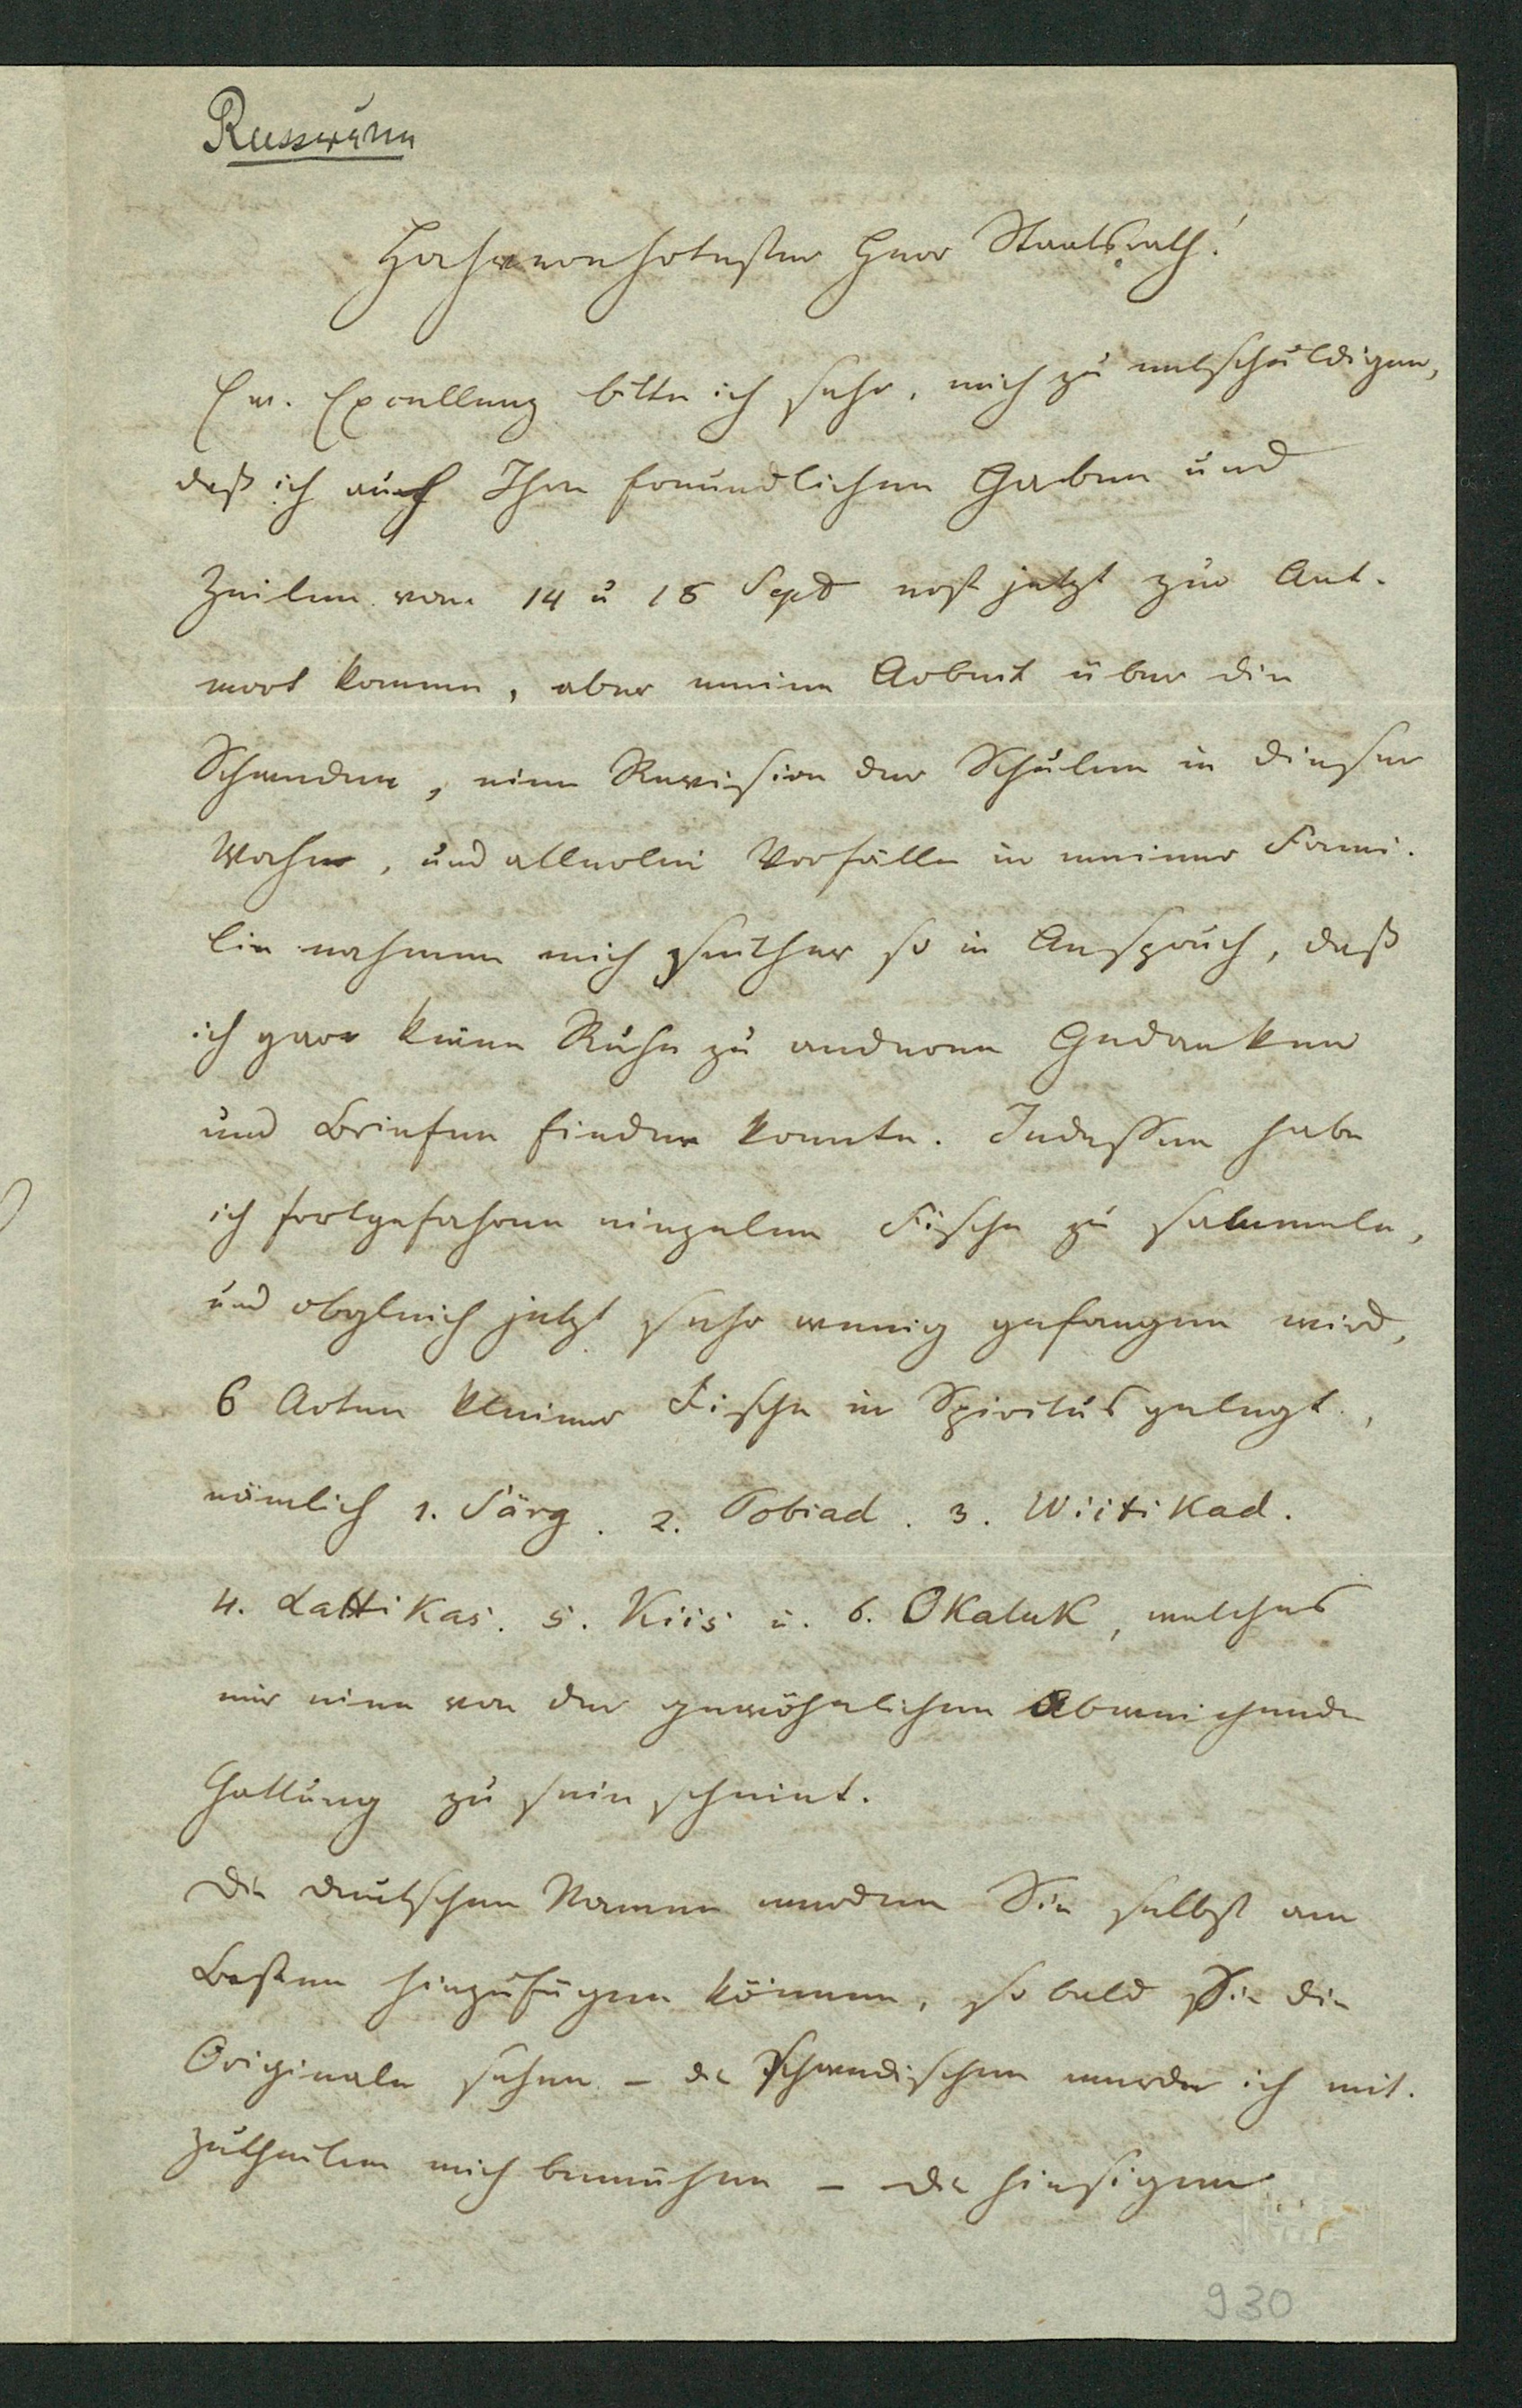 Russwurm
Hochverehrtester Herr Staatsrath!
Ew. Excellenz bitte ich sehr, mich zu entschuldigen,
daß ich auf Ihre freundlichen Gaben und
Zeilen vom 14 u 18 Sept erst jetzt zur Ant-
wort komme, aber meine Arbeit über die
Schweden, eine Revision der Schulen in dieser
Woche, und allerlei Vorfälle in meiner Fami-
lie nahmen mich seither so in Anspruch, daß
ich gar keine Ruhe zu anderen Gedanken
und Briefen finden konnte. Indessen habe
ich fortgefahren einzelne Fische zu sammeln,
und obgleich jetzt sehr wenig gefangen wird,
6 Arten kleiner Fische in Spiritus gelegt,
nämlich 1. Särg. 2. Tobiad. 3. Wiitikad.
4. Lattikas. 5. Kiis u. 6. Okaluk, welches
mir eine von der gewöhnlichen abweichende
Gattung zu sein scheint.
Die deutschen Namen werden Sie selbst am
Besten hinzufügen können, so bald Sie die
Originale sehen – die schwedischen werde ich mit-
zutheilen mich bemühen – die hiesigen
930